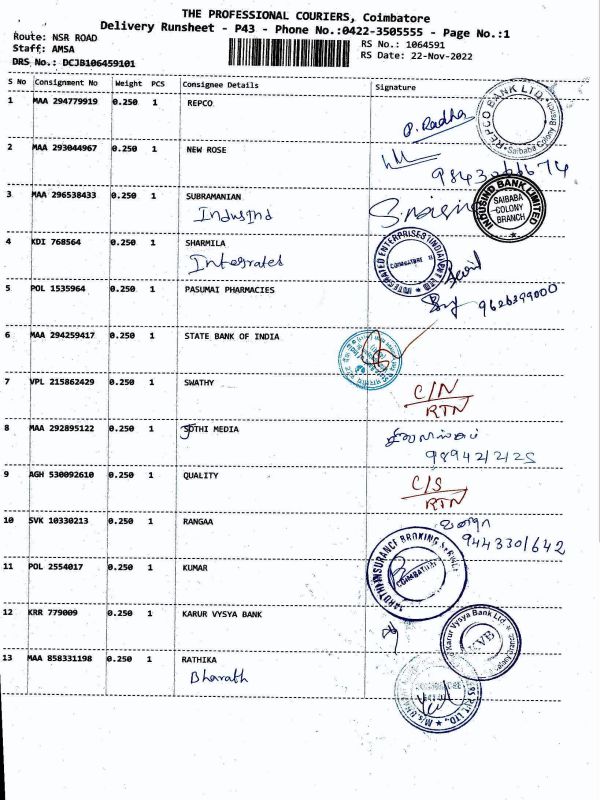 THE PROFESSIONAL COURIERS, Coimbatore
Delivery Runsheet - P43 - Phone No.:0422-3505555 - Page No.:1
Route: NSR ROAD
RS No.: 1064591
Staff: AMSA
RS Date: 22-Nov-2022
DRS No.: DCJB106459101
S No Consignment No Weight PCS Consignee Details Signature
1 MAA 294779919 0.250 1 REPCO P. Radha
REPCO BANK LTD. Saibaba Colony Branch
2 MAA 293044967 0.250 1 NEW ROSE
3 MAA 296538433 0.250 1 SUBRAMANIAN
IndusInd
INDUSIND BANK LIMITED SAIBABA COLONY BRANCH
4 KDI 768564 0.250 1 SHARMILA
Integrated
INTEGRATED ENTERPRISES (INDIA) PVT LTD COIMBATORE
5 POL 1535964 0.250 1 PASUMAI PHARMACIES
9626399000
6 MAA 294259417 0.250 1 STATE BANK OF INDIA
7 VPL 215862429 0.250 1 SWATHY C/N
RTN
8 MAA 292895122 0.250 1 JOTHI MEDIA
9894212125
9 AGH 530092610 0.250 1 QUALITY C/S
RTN
10 SVK 10330213 0.250 1 RANGAA
9443301642
11 POL 2554017 0.250 1 KUMAR
INSURANCE BROKING COIMBATORE
12 KRR 779009 0.250 1 KARUR VYSYA BANK
Karur Vysya Bank Ltd. KVB
13 MAA 858331198 0.250 1 RATHIKA
Bharath